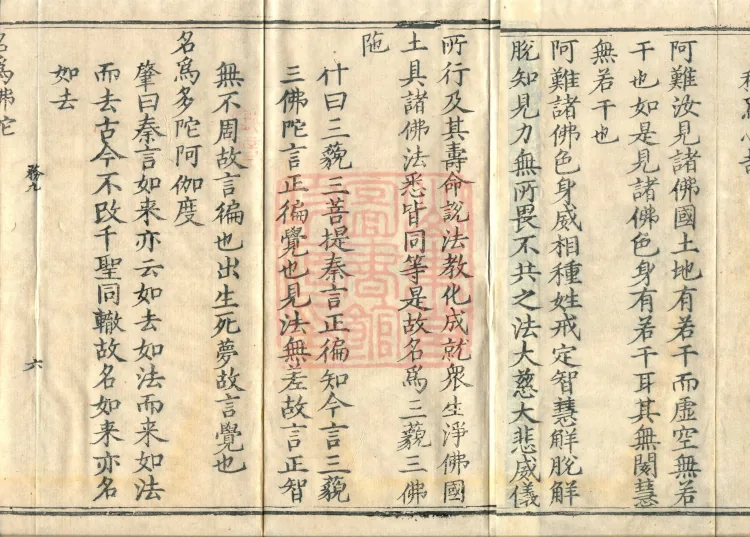 阿難汝見諸佛國土地有若干而虛空無若
干也如是見諸佛色身有若干耳其無閡慧
無若干也
阿難諸佛色身威相種姓戒定智慧解脫解
脫知見力無所畏不共之法大慈大悲威儀
所行及其壽命說法教化成就衆生淨佛國
土具諸佛法悉皆同等是故名爲三藐三佛
陁
什曰三藐三菩提秦言正徧知今言三藐
三佛陀言正徧覺也見法無差故言正智
無不周故言徧也出生死夢故言覺也
名爲多陀阿伽度
肇曰秦言如来亦云如去如法而来如法
而去古今不改千聖同轍故名如来亦名
如去
務九
六
名爲佛陀